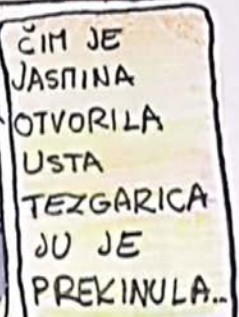 ČIM JE
JASMINA
OTVORILA
USTA
TEZGARICA
JU JE
PREKINULA..